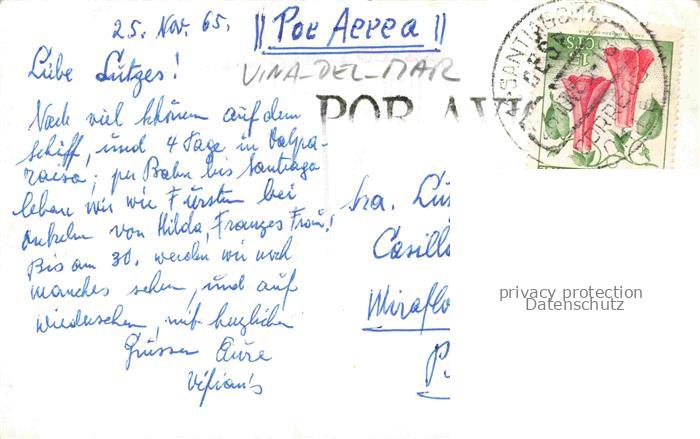 25. Nov. 65.
|| Por Aerea ||
VINA-DEL-MAR
POR AVI
SANTIAGO
CORREOS
Liebe Lützes!
Nach viel schönem auf dem
Schiff, und 4 Tage in Valpa-
raiso; per Bahn bis Santiago
leben wir wie Fürsten bei
von Hilda, Franzes Frau!
Bis am 30. werden wir noch
manches sehen, und auf
wiedersehen, mit herzlichen
Grüssen Eure
Sra. Lü
Casill
Miraflo
P
privacy protection
Datenschutz